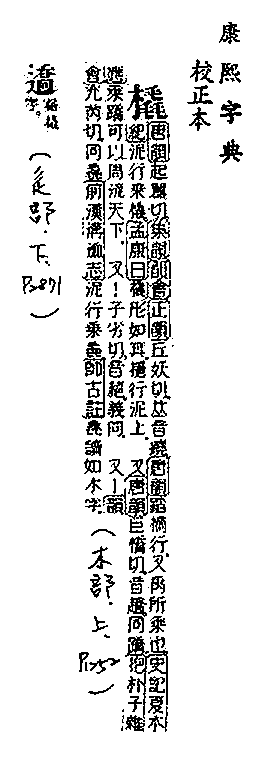 康熙字典
校正本
橇 唐韻起嚻切集韻韻會正韻丘妖切𠀤音蹺唐韻蹋摘行又禹所乘也史記夏本
紀泥行乘橇孟康曰橇形如箕擿行泥上 又唐韻巨憍切音趫同蹻抱朴子雜
應乘蹻可以周流天下 又丨子劣切音絕義同 又丨韻
會充芮切同毳前漢溝洫志泥行乘毳師古註毳讀如本字
(木部.上、P1252)
字。
(辵部.下、)